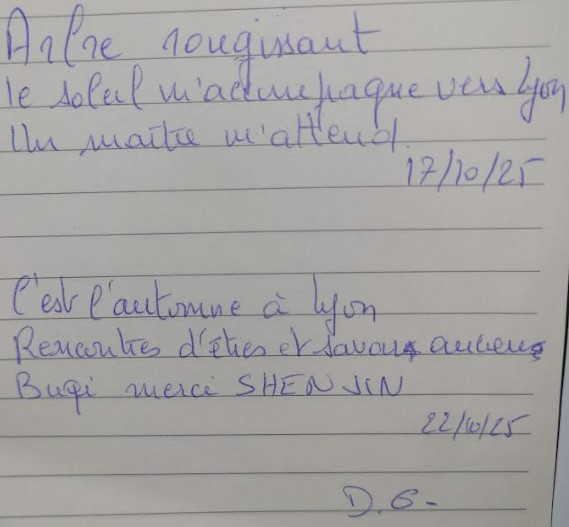 Arbre rougissant
le soleil m'accompagne vers Lyon
Un maître m'attend.
17/10/25
C'est l'automne à Lyon
Rencontres d'êtres et savoirs anciens
Buqi merci SHEN JIN
22/10/25
D. G-